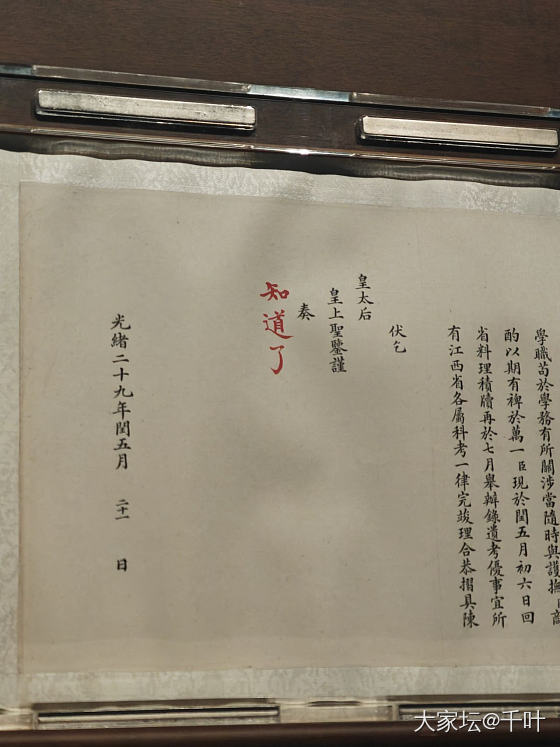 學職苟於學務有所關涉當隨時與護撫臣商
酌以期有裨於萬一臣現於閏五月初六日回
省料理積牘再於七月舉辦錄遺考優事宜所
有江西省各屬科考一律完竣理合恭摺具陳
伏乞
皇太后
皇上聖鑒謹
奏
知道了
光緒二十九年閏五月 二十一 日
大家坛@千叶